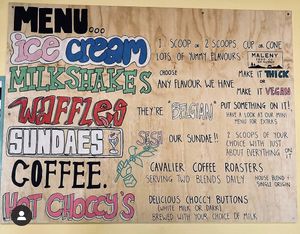 MENU...
ice cream
1 SCOOP or 2 SCOOPS CUP or CONE
LOTS OF YUMMY FLAVOURS
MALENY
MILKSHAKES
CHOOSE
ANY FLAVOUR WE HAVE
MAKE IT THICK
MAKE IT VEGAN
WAFFLES
THEY'RE "BELGIAN"
PUT SOMETHING ON IT!
HAVE A LOOK AT OUR MINI
MENU FOR EXTRAS
SUNDAES
OUR SUNDAE!!
2 SCOOPS OF YOUR
CHOICE WITH JUST
ABOUT EVERYTHING ON IT
COFFEE.
CAVALIER COFFEE ROASTERS
SERVING TWO BLENDS DAILY
HOUSE BLEND +
SINGLE ORIGIN
HOT CHOCCY'S
DELICIOUS CHOCCY BUTTONS
(WHITE, MILK OR DARK)
BREWED WITH YOUR CHOICE OF MILK